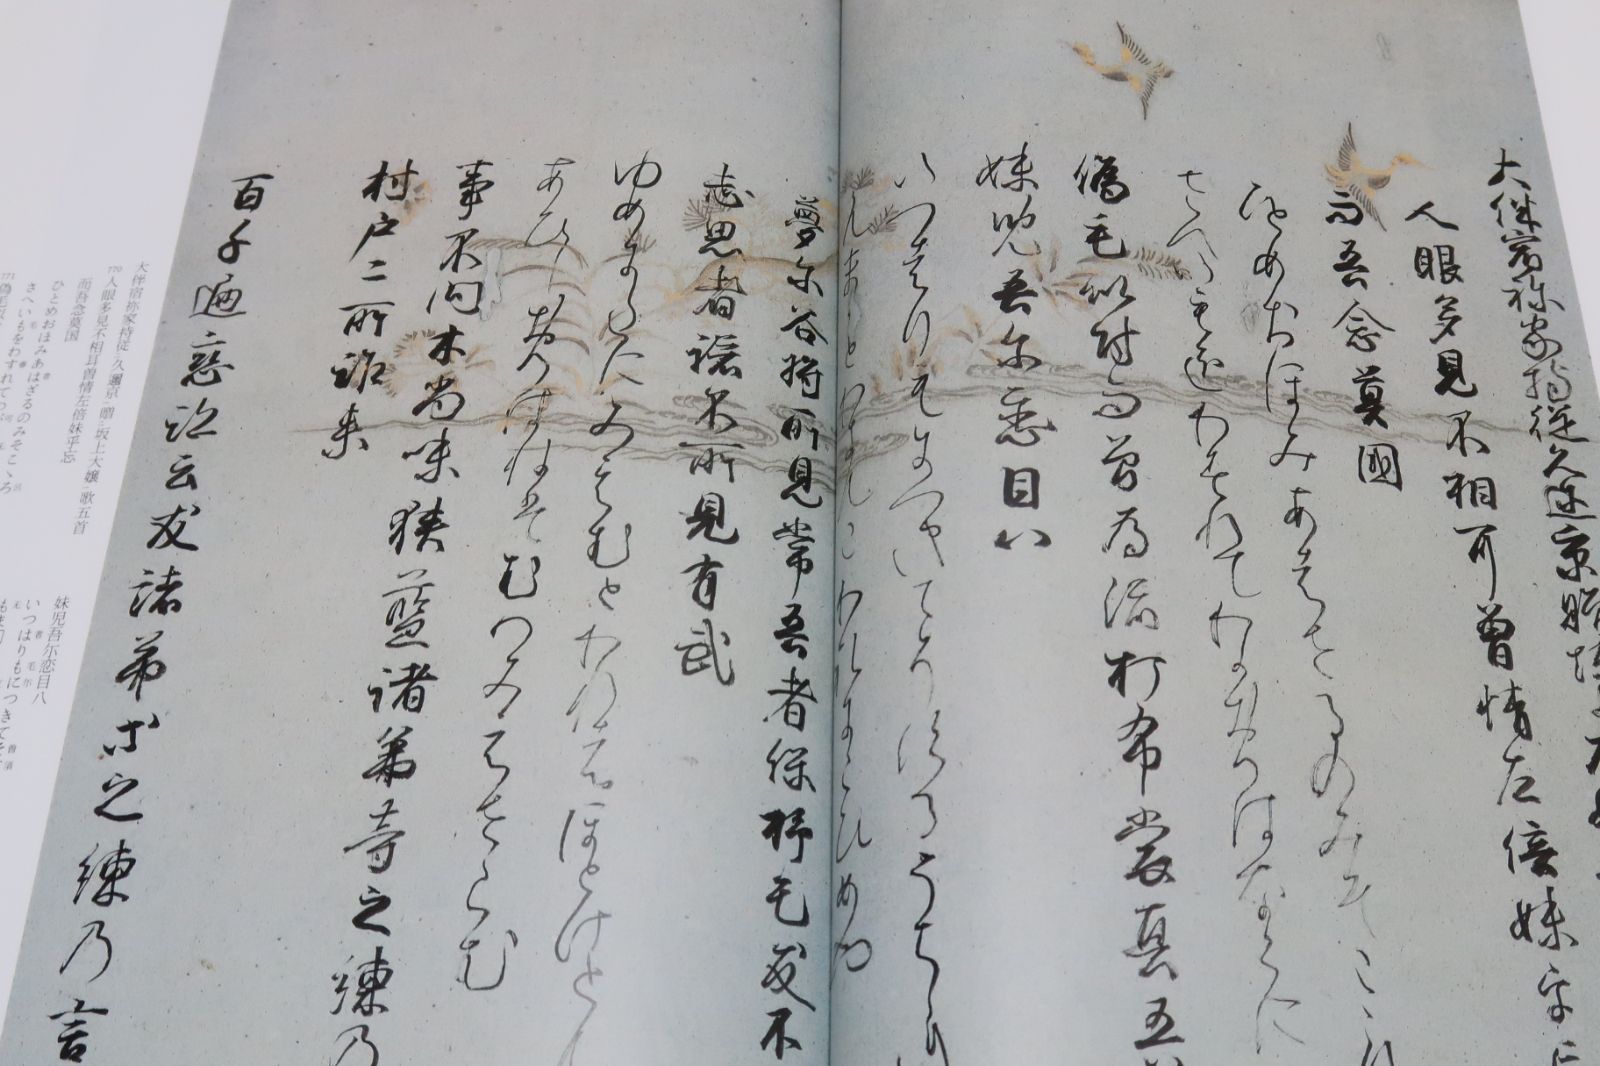 大伴宿祢家持従久迩京贈坂上大
人眼多見不相耳曽情左倍妹乎忘
而吾念莫國
ひとめおほみあはさるのみそこゝろ
さへいもをわすれてわかおもはなくに
偽毛似付而曽為流打布裳真吾
妹児吾尓恋目八
いつはりもにつきてそするうちしくも
まことわきもこわれにこひめや
夢尓谷将所見常吾者保杼毛友不
志思者諾不所見有武
ゆめにたにみえむとわれはほとけとも
あひしおもはねはむへみえさらむ
事不問木尚味狭藍諸弟等之練乃
村戸二所詐来
百千遍恋跡云友諸弟等之練乃言
大伴宿祢家持従久邇京贈坂上大嬢歌五首
770 人眼多見不相耳曽情左倍妹乎忘
而吾念莫国
ひとめおほみあはざるのみそこゝろ
さへいもをわすれて
771 偽毛似
妹児吾尓恋目八
いつはりもにつきてそす